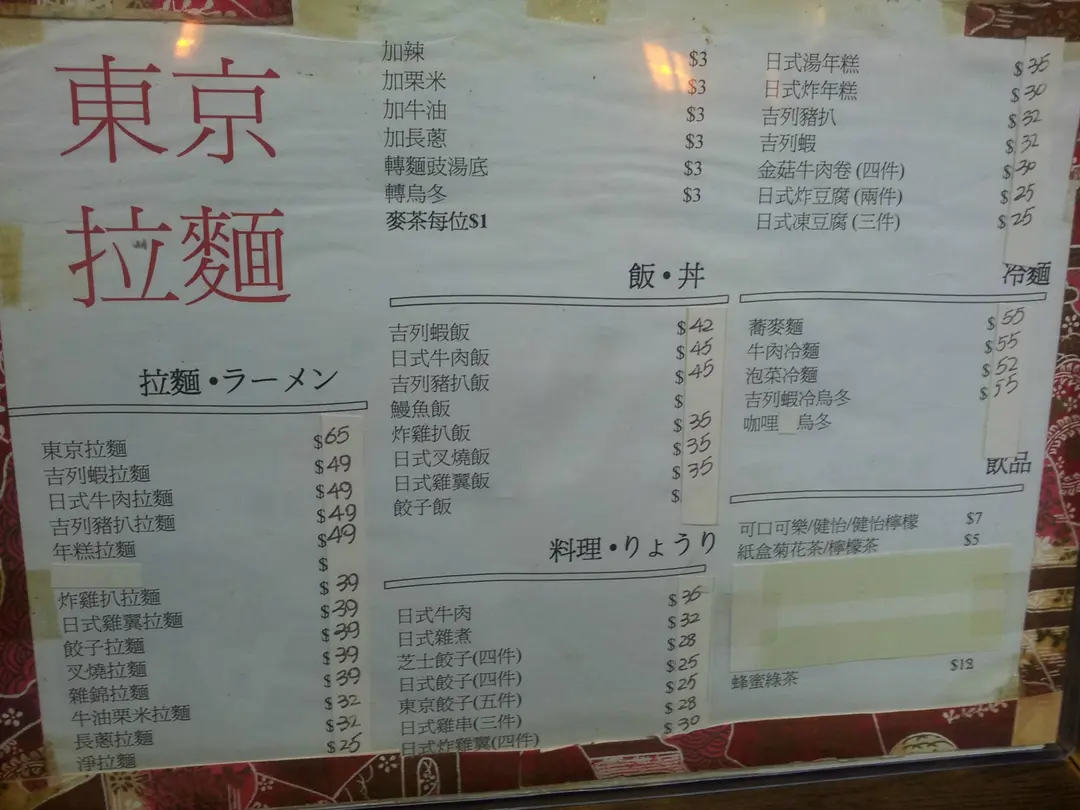 東京
拉麵
拉麵•ラーメン
東京拉麵 $65
吉列蝦拉麵 $49
日式牛肉拉麵 $49
吉列豬扒拉麵 $49
年糕拉麵 $49
$
炸雞扒拉麵 $39
日式雞翼拉麵 $39
餃子拉麵 $39
叉燒拉麵 $39
雜錦拉麵 $39
牛油栗米拉麵 $32
長蔥拉麵 $32
淨拉麵 $25
加辣 $3
加栗米 $3
加牛油 $3
加長蔥 $3
轉麵豉湯底 $3
轉烏冬 $3
麥茶每位$1
飯•丼
吉列蝦飯 $42
日式牛肉飯 $45
吉列豬扒飯 $45
鰻魚飯 $
炸雞扒飯 $35
日式叉燒飯 $35
日式雞翼飯 $35
餃子飯 $
料理•りょうり
日式牛肉 $35
日式雜煮 $32
芝士餃子(四件) $28
日式餃子(四件) $25
東京餃子(五件) $25
日式雞串(三件) $28
日式炸雞翼(四件) $30
日式湯年糕 $35
日式炸年糕 $30
吉列豬扒 $32
吉列蝦 $32
金菇牛肉卷 (四件) $30
日式炸豆腐 (兩件) $25
日式凍豆腐 (三件) $25
冷麵
蕎麥麵 $55
牛肉冷麵 $55
泡菜冷麵 $52
吉列蝦冷烏冬 $55
咖哩 烏冬
飲品
可口可樂/健怡/健怡檸檬 $7
紙盒菊花茶/檸檬茶 $5
蜂蜜綠茶 $12